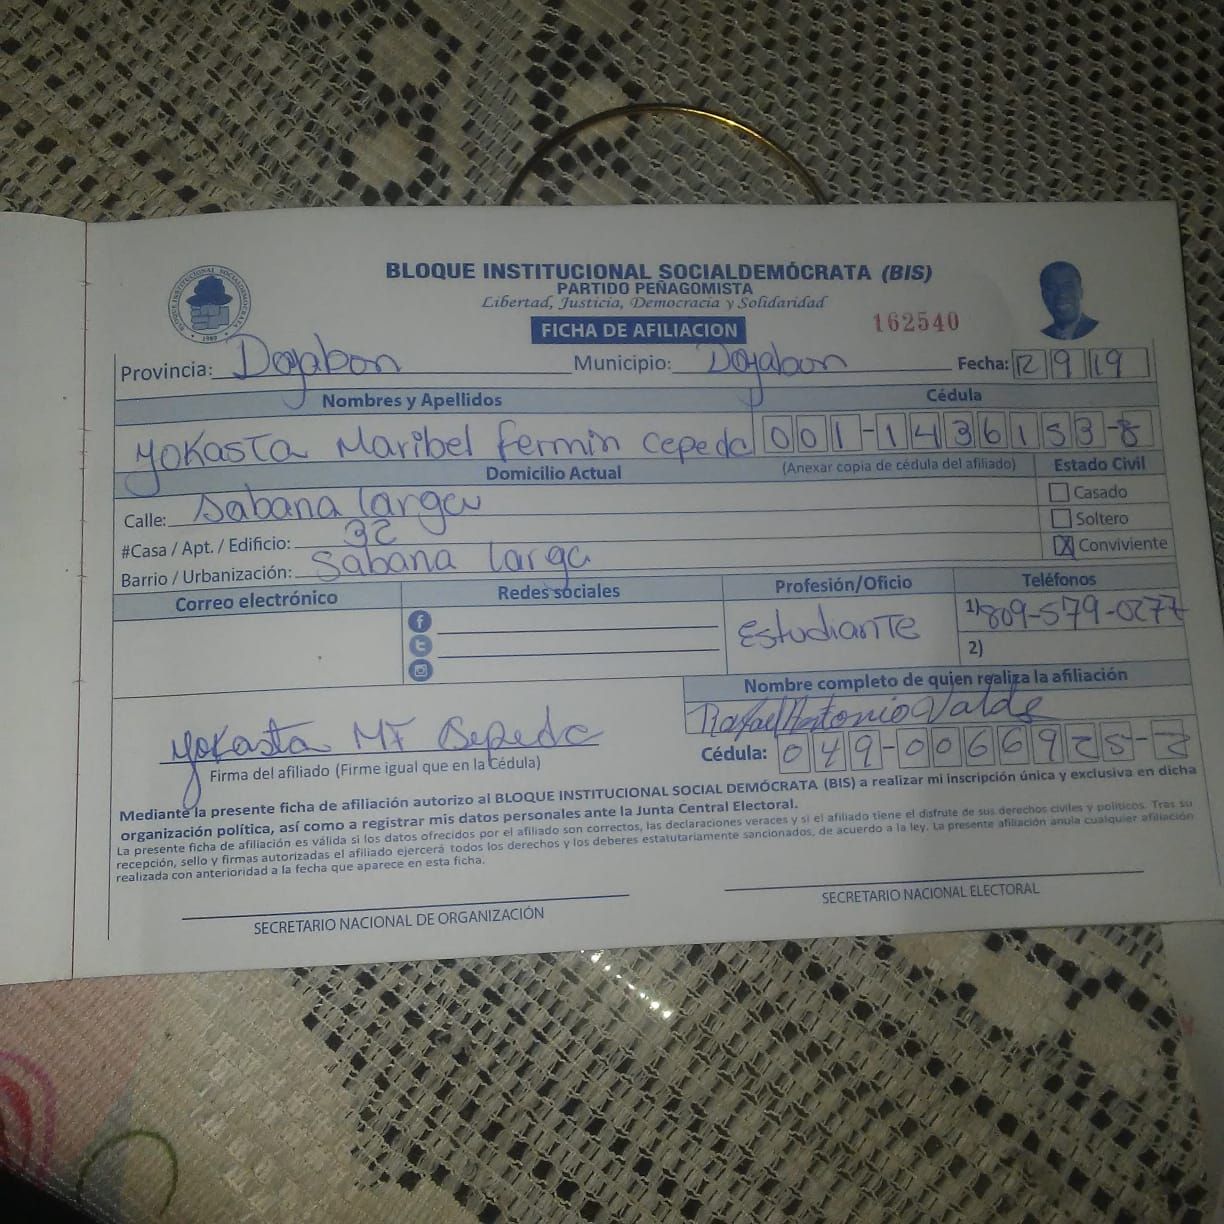 BLOQUE INSTITUCIONAL SOCIALDEMÓCRATA (BIS)
PARTIDO PEÑAGOMISTA
Libertad, Justicia, Democracia y Solidaridad
FICHA DE AFILIACION
162540
BLOQUE INSTITUCIONAL SOCIALDEMOCRATA
1989
Provincia: Dajabon Municipio: Dajabon Fecha: 12 9 19
Nombres y Apellidos Cédula
Yokasta Maribel fermin cepeda 001-1436153-8
Domicilio Actual (Anexar copia de cédula del afiliado) Estado Civil
Calle: Sabana larga Casado
#Casa / Apt. / Edificio: 32 Soltero
Barrio / Urbanización: Sabana larga X Conviviente
Correo electrónico Redes sociales Profesión/Oficio Teléfonos
Estudiante 1) 809-579-0277
2)
Nombre completo de quien realiza la afiliación
Rafael Antonio Valde
Yokasta MF Cepeda Cédula: 049-0066925-2
Firma del afiliado (Firme igual que en la Cédula)
Mediante la presente ficha de afiliación autorizo al BLOQUE INSTITUCIONAL SOCIAL DEMÓCRATA (BIS) a realizar mi inscripción única y exclusiva en dicha
organización política, así como a registrar mis datos personales ante la Junta Central Electoral.
La presente ficha de afiliación es válida si los datos ofrecidos por el afiliado son correctos, las declaraciones veraces y si el afiliado tiene el disfrute de sus derechos civiles y políticos. Tras su
recepción, sello y firmas autorizadas el afiliado ejercerá todos los derechos y los deberes estatutariamente sancionados, de acuerdo a la ley. La presente afiliación anula cualquier afiliación
realizada con anterioridad a la fecha que aparece en esta ficha.
SECRETARIO NACIONAL DE ORGANIZACIÓN SECRETARIO NACIONAL ELECTORAL